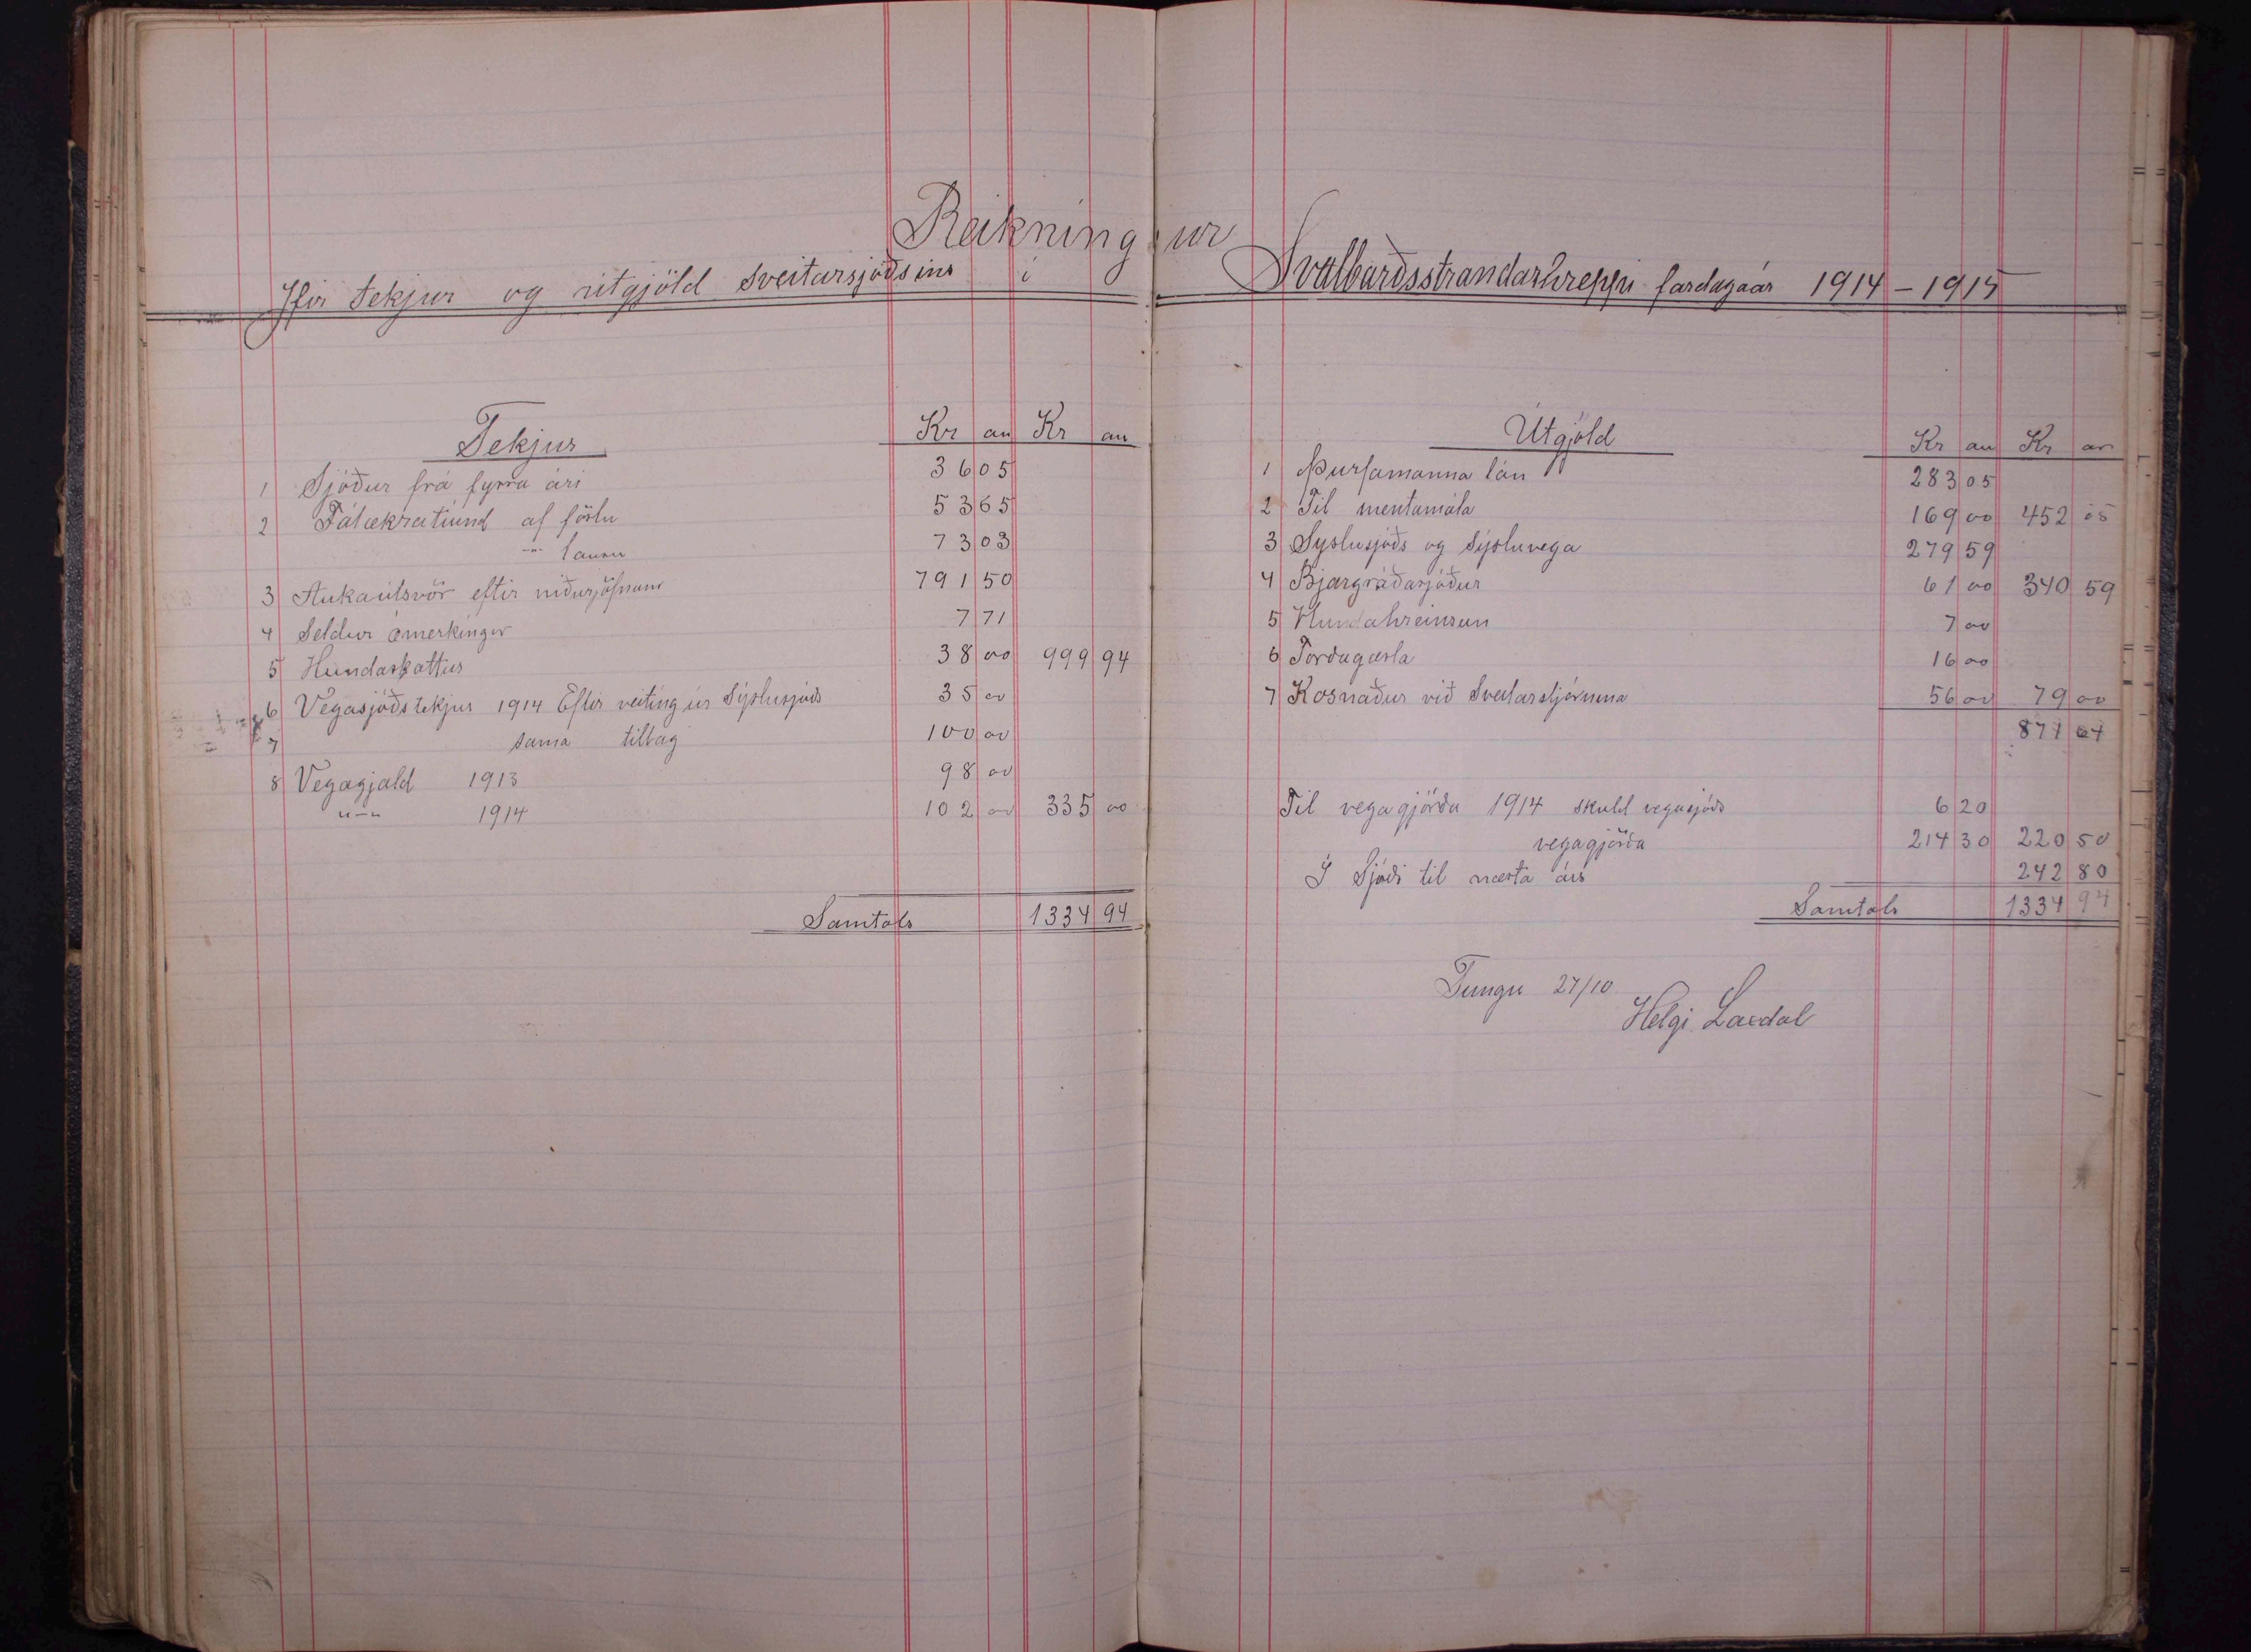 Reikningur
Yfir tekjur og útgjöld sveitarsjóðsins í Svalbarðsstrandarhreppi fardagaár 1914-1915
Tekjur Kr au Kr au
1 Sjóður frá fyrra ári 36 05
2 Fátækratíund af föstu 53 65
-"- lausu 73 03
3 Aukaútsvör eftir niðurjöfnun 791 50
4 Seldur ómerkingur 7 71
5 Hundaskattur 38 00 999 94
6 Vegasjóðstekjur 1914 Eftir veiting úr Sýslusjóð 35 00
7 sama tillag 100 00
8 Vegagjald 1913 98 00
"-" 1914 102 00 335 00
Samtals 1334 94
Útgjöld Kr au Kr au
1 Þurfamanna lán 283 05
2 Til mentamála 169 00 452 05
3 Syslusjóðs og Sýsluvega 279 59
4 Bjargráðasjóður 61 00 340 59
5 Hundahreinsun 7 00
6 Forðagæsla 16 00
7 Kosnaður við Sveitarstjórnina 56 00 79 00
871 64
Til vegagjörða 1914 skuld vegasjóðs 6 20
vegagjörða 214 30 220 50
Í Sjóði til næsta árs 242 80
Samtals 1334 94
Tungu 27/10
Helgi Laxdal